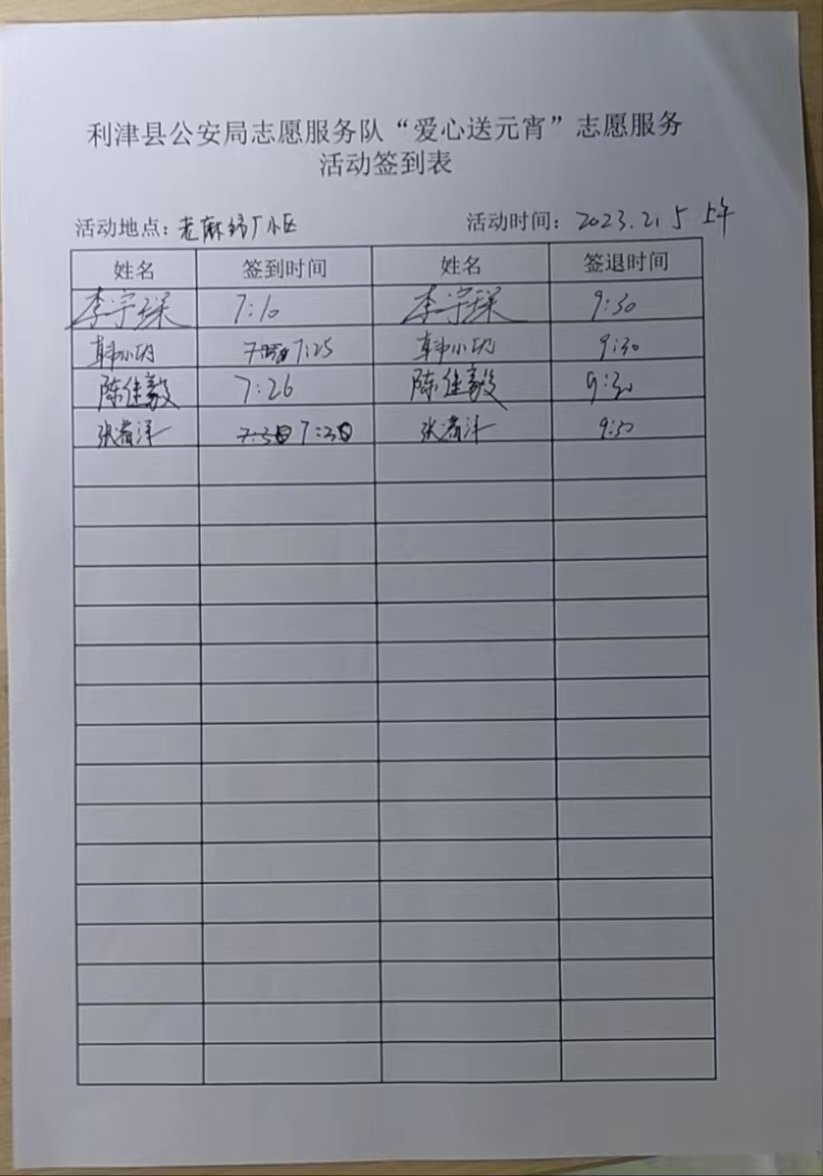 利津县公安局志愿服务队“爱心送元宵”志愿服务
活动签到表
活动地点：老麻纺厂小区 活动时间：2023.2.5 上午
姓名 签到时间 姓名 签退时间
李宇琛 7:10 李宇琛 9:30
韩小功 7:25 韩小功 9:30
陈佳毅 7:26 陈佳毅 9:30
张清洋 7:30 张清洋 9:30